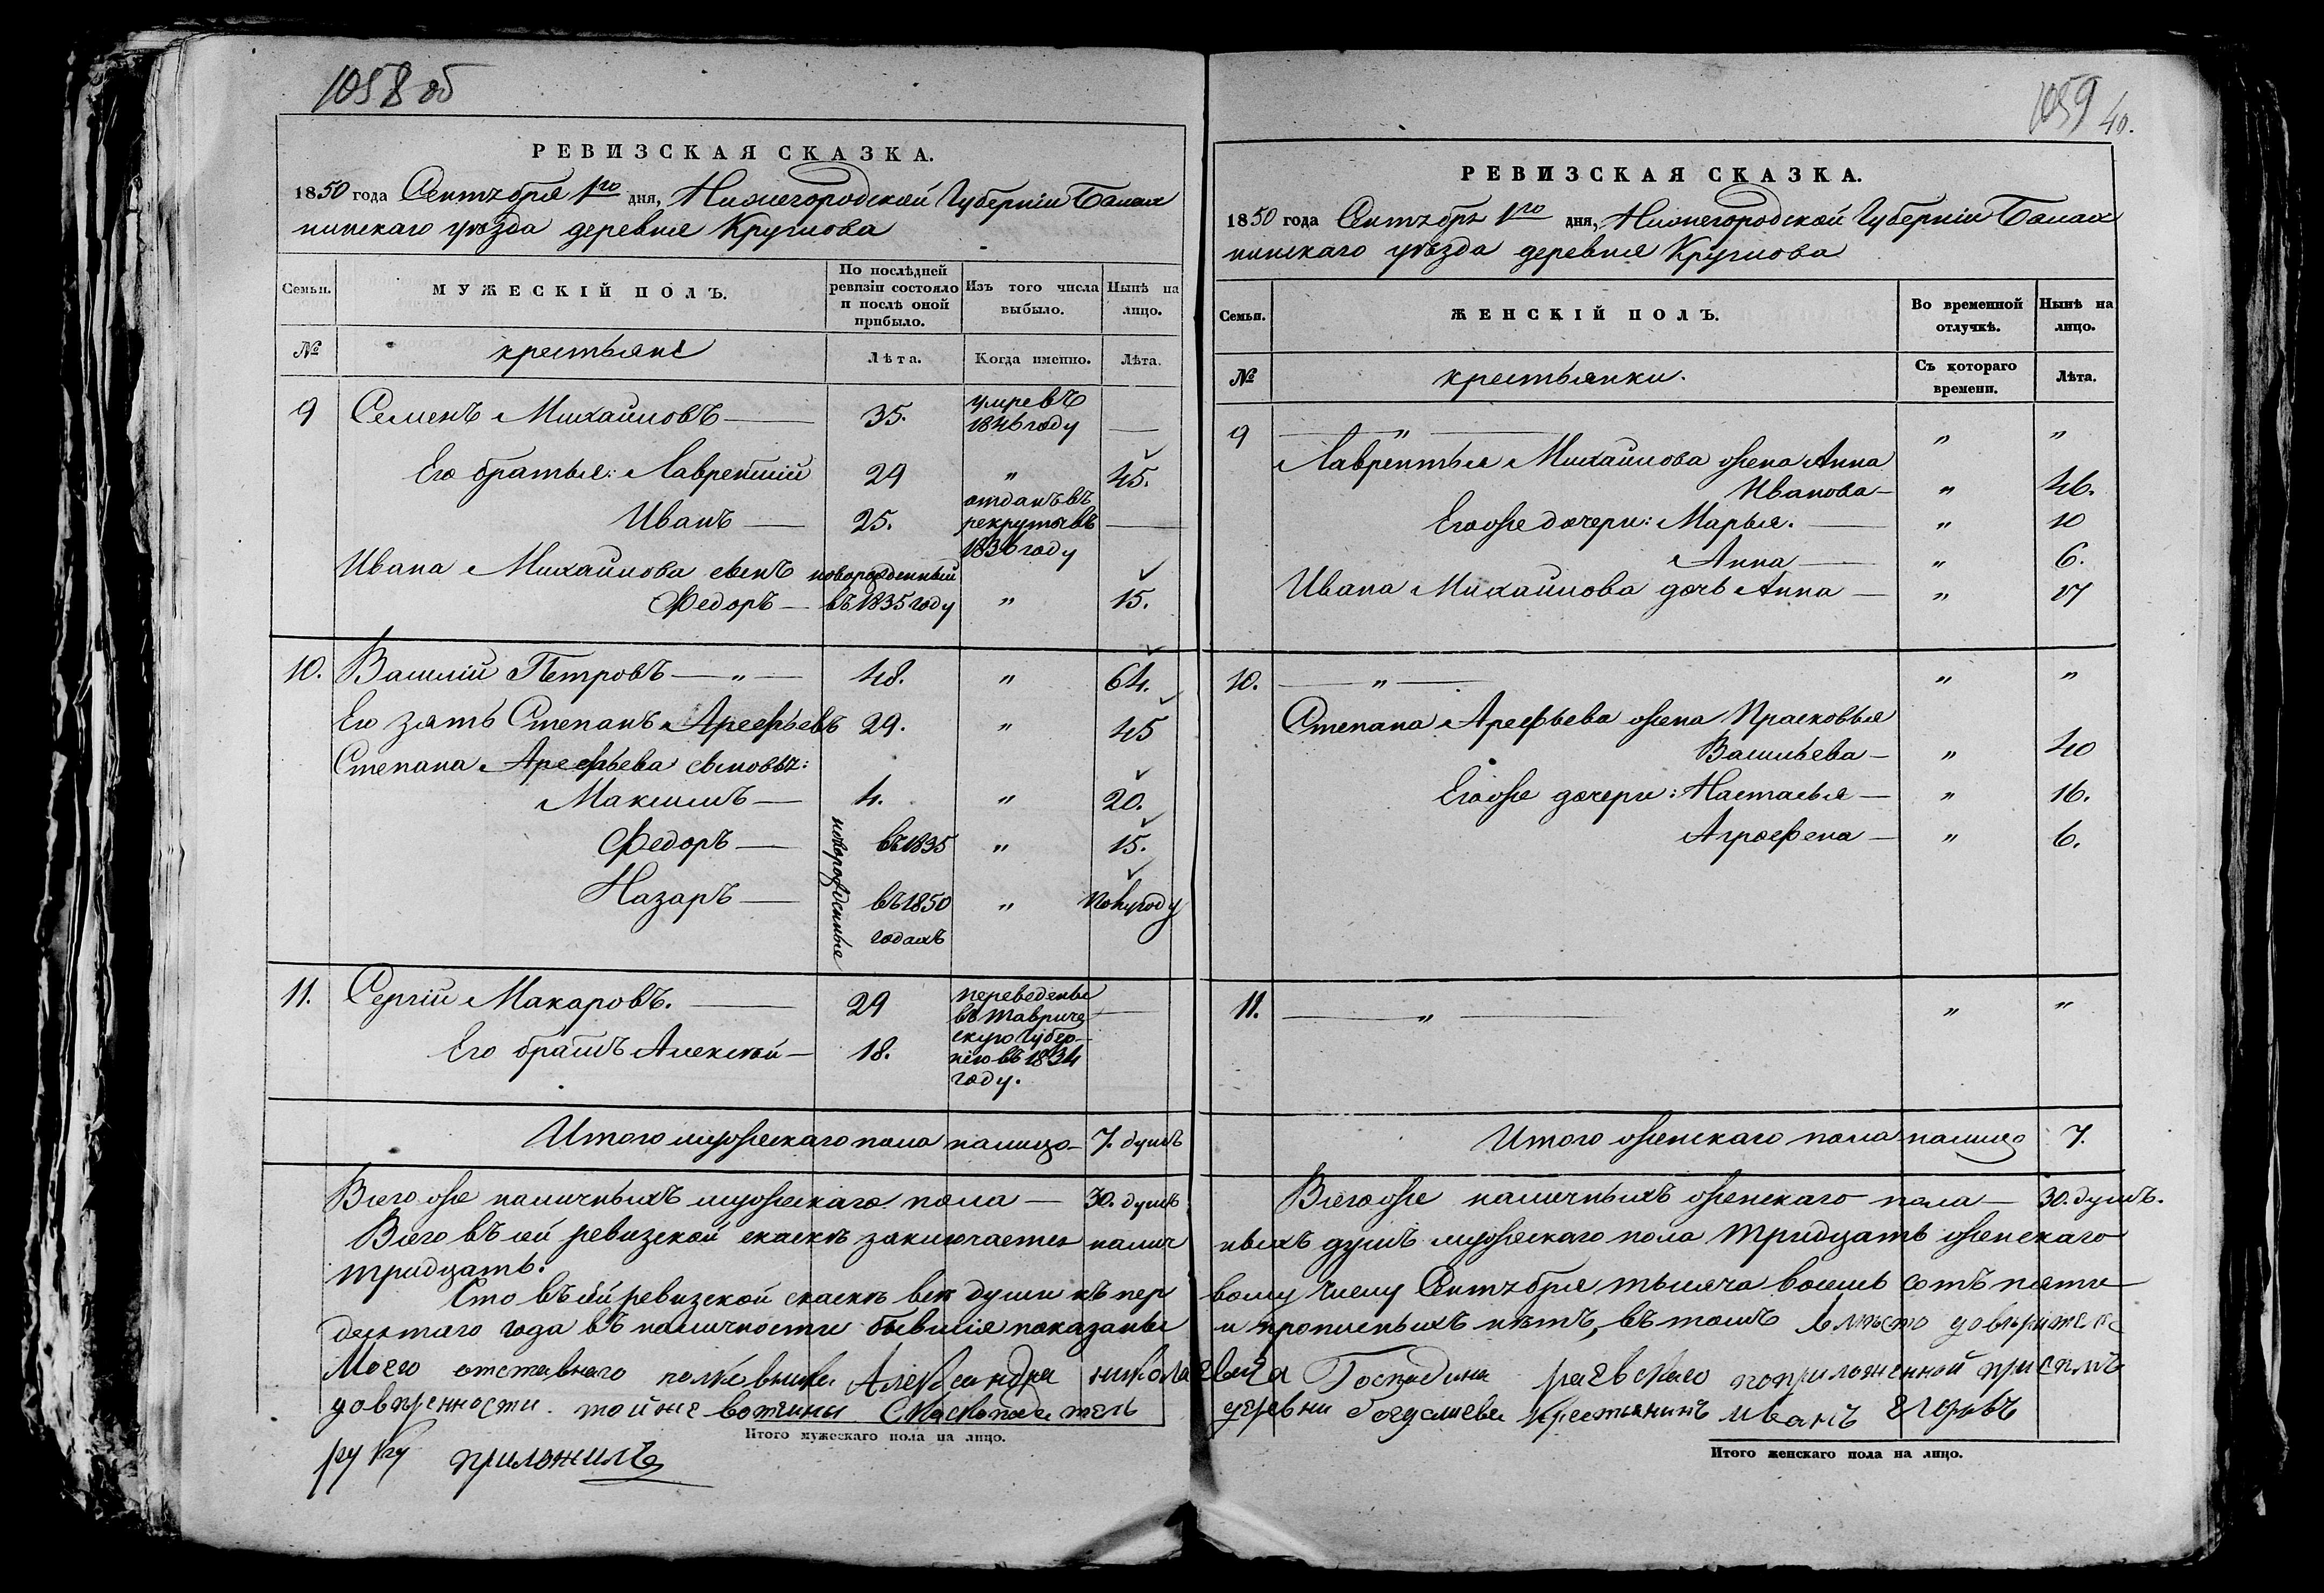 1058 об
РЕВИЗСКАЯ СКАЗКА.
1850 года Сентября 1го дня, Нижегородской Губерніи Балах
нинскаго уѣзда деревни Круглова
Семьи.
МУЖЕСКІЙ ПОЛЪ.
По послѣдней
ревизіи состояло
и послѣ оной
прибыло.
Изъ того числа
выбыло.
Нынѣ на
лицо.
№
крестьяне
Лѣта.
Когда именно.
Лѣта.
9 Семенъ Михайловъ — 35. умре въ
1846 году —
Его братья: Лаврентій 29 " 45.
Иванъ — 25. отданъ въ
рекруты въ —
1836 году
Ивана Михайлова сынъ новорожденный
Федоръ — въ 1835 году " 15.
10. Василій Петровъ — " — 48. " 64.
Его зять Степанъ Арефьевъ 29. " 45
Степана Арефьева сыновья:
Максимъ — 4. " 20.
новорожденные
Федоръ — въ 1835 " 15.
Назаръ — въ 1850 " полугоду
годахъ
11. Сергій Макаровъ. — 29 переведены
въ Тавриче —
скую Губер-
Его братъ Алексѣй — 18. нію въ 1834
году.
Итого мужескаго пола налицо — 7. душъ
Всего же наличныхъ мужескаго пола — 30. душъ
Всего въ сей ревизской сказкѣ заключается налич
тридцать.
Что въ сей ревизской сказкѣ всѣ души къ пер
десятаго года въ наличности бывшія показаны
Моего отставнаго полковника Александра Никола
довѣренности. той же вотчины Сказкоподатель
Итого мужескаго пола на лицо.
руку приложилъ
1059 40.
РЕВИЗСКАЯ СКАЗКА.
1850 года Сентябр 1го дня, Нижегородской Губерніи Балах
нинскаго уѣзда деревни Круглова
Семьи.
ЖЕНСКІЙ ПОЛЪ.
Во временной
отлучкѣ.
Нынѣ на
лицо.
№
крестьянки.
Съ котораго
времени.
Лѣта.
9 — " — " "
Лаврентья Михайлова жена Анна
Иванова — " 46.
Его же дочери: Марья. — " 10
Анна — " 6.
Ивана Михайлова дочь Анна — " 17
10. — " — " "
Степана Арефьева жена Прасковья
Васильева — " 40
Его же дочери: Настасья — " 16.
Аграфена — " 6.
11. — " — " "
Итого женскаго пола налицо 7.
Всего же наличныхъ женскаго пола — 30. душъ.
ныхъ душъ мужескаго пола тридцать женскаго
вому числу Сентября тысяча восемь сотъ пяти
и прописныхъ нѣтъ, въ томъ вмѣсто довѣрителя
евича Господина Раевскаго по приложенной при семъ
деревни крестьянинъ Иванъ Егоровъ
Итого женскаго пола на лицо.